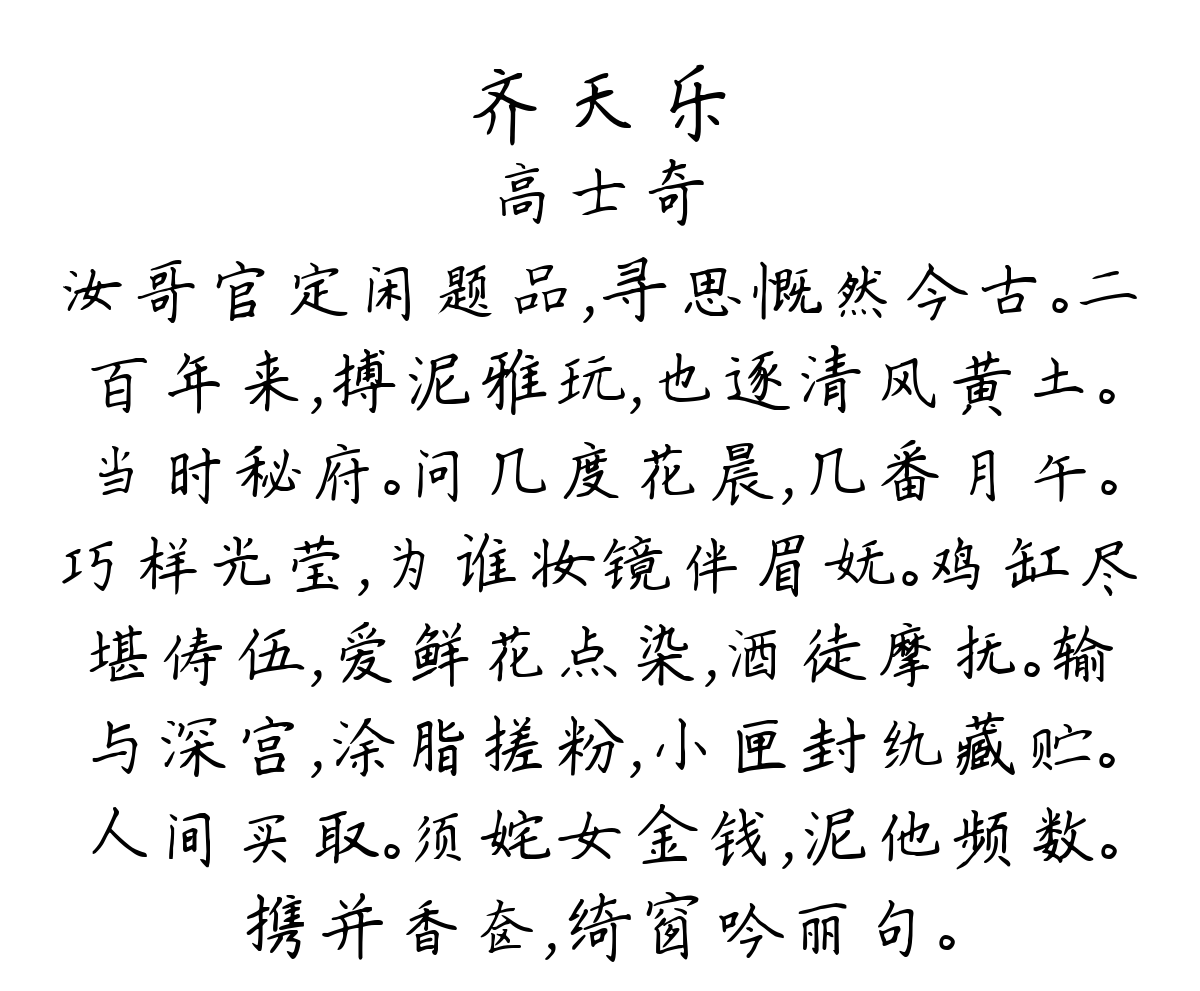 齐天乐
高士奇
汝哥官定闲题品,寻思慨然今古。二
百年来,搏泥雅玩,也逐清风黄土。
当时秘府。问几度花晨,几番月午。
巧样光莹,为谁妆镜伴眉妩。鸡缸尽
堪俦伍,爱鲜花点染,酒徒摩抚。输
与深宫,涂脂搓粉,小匣封纨藏贮。
人间买取。须姹女金钱,泥他频数。
携并香奁,绮窗吟丽句。